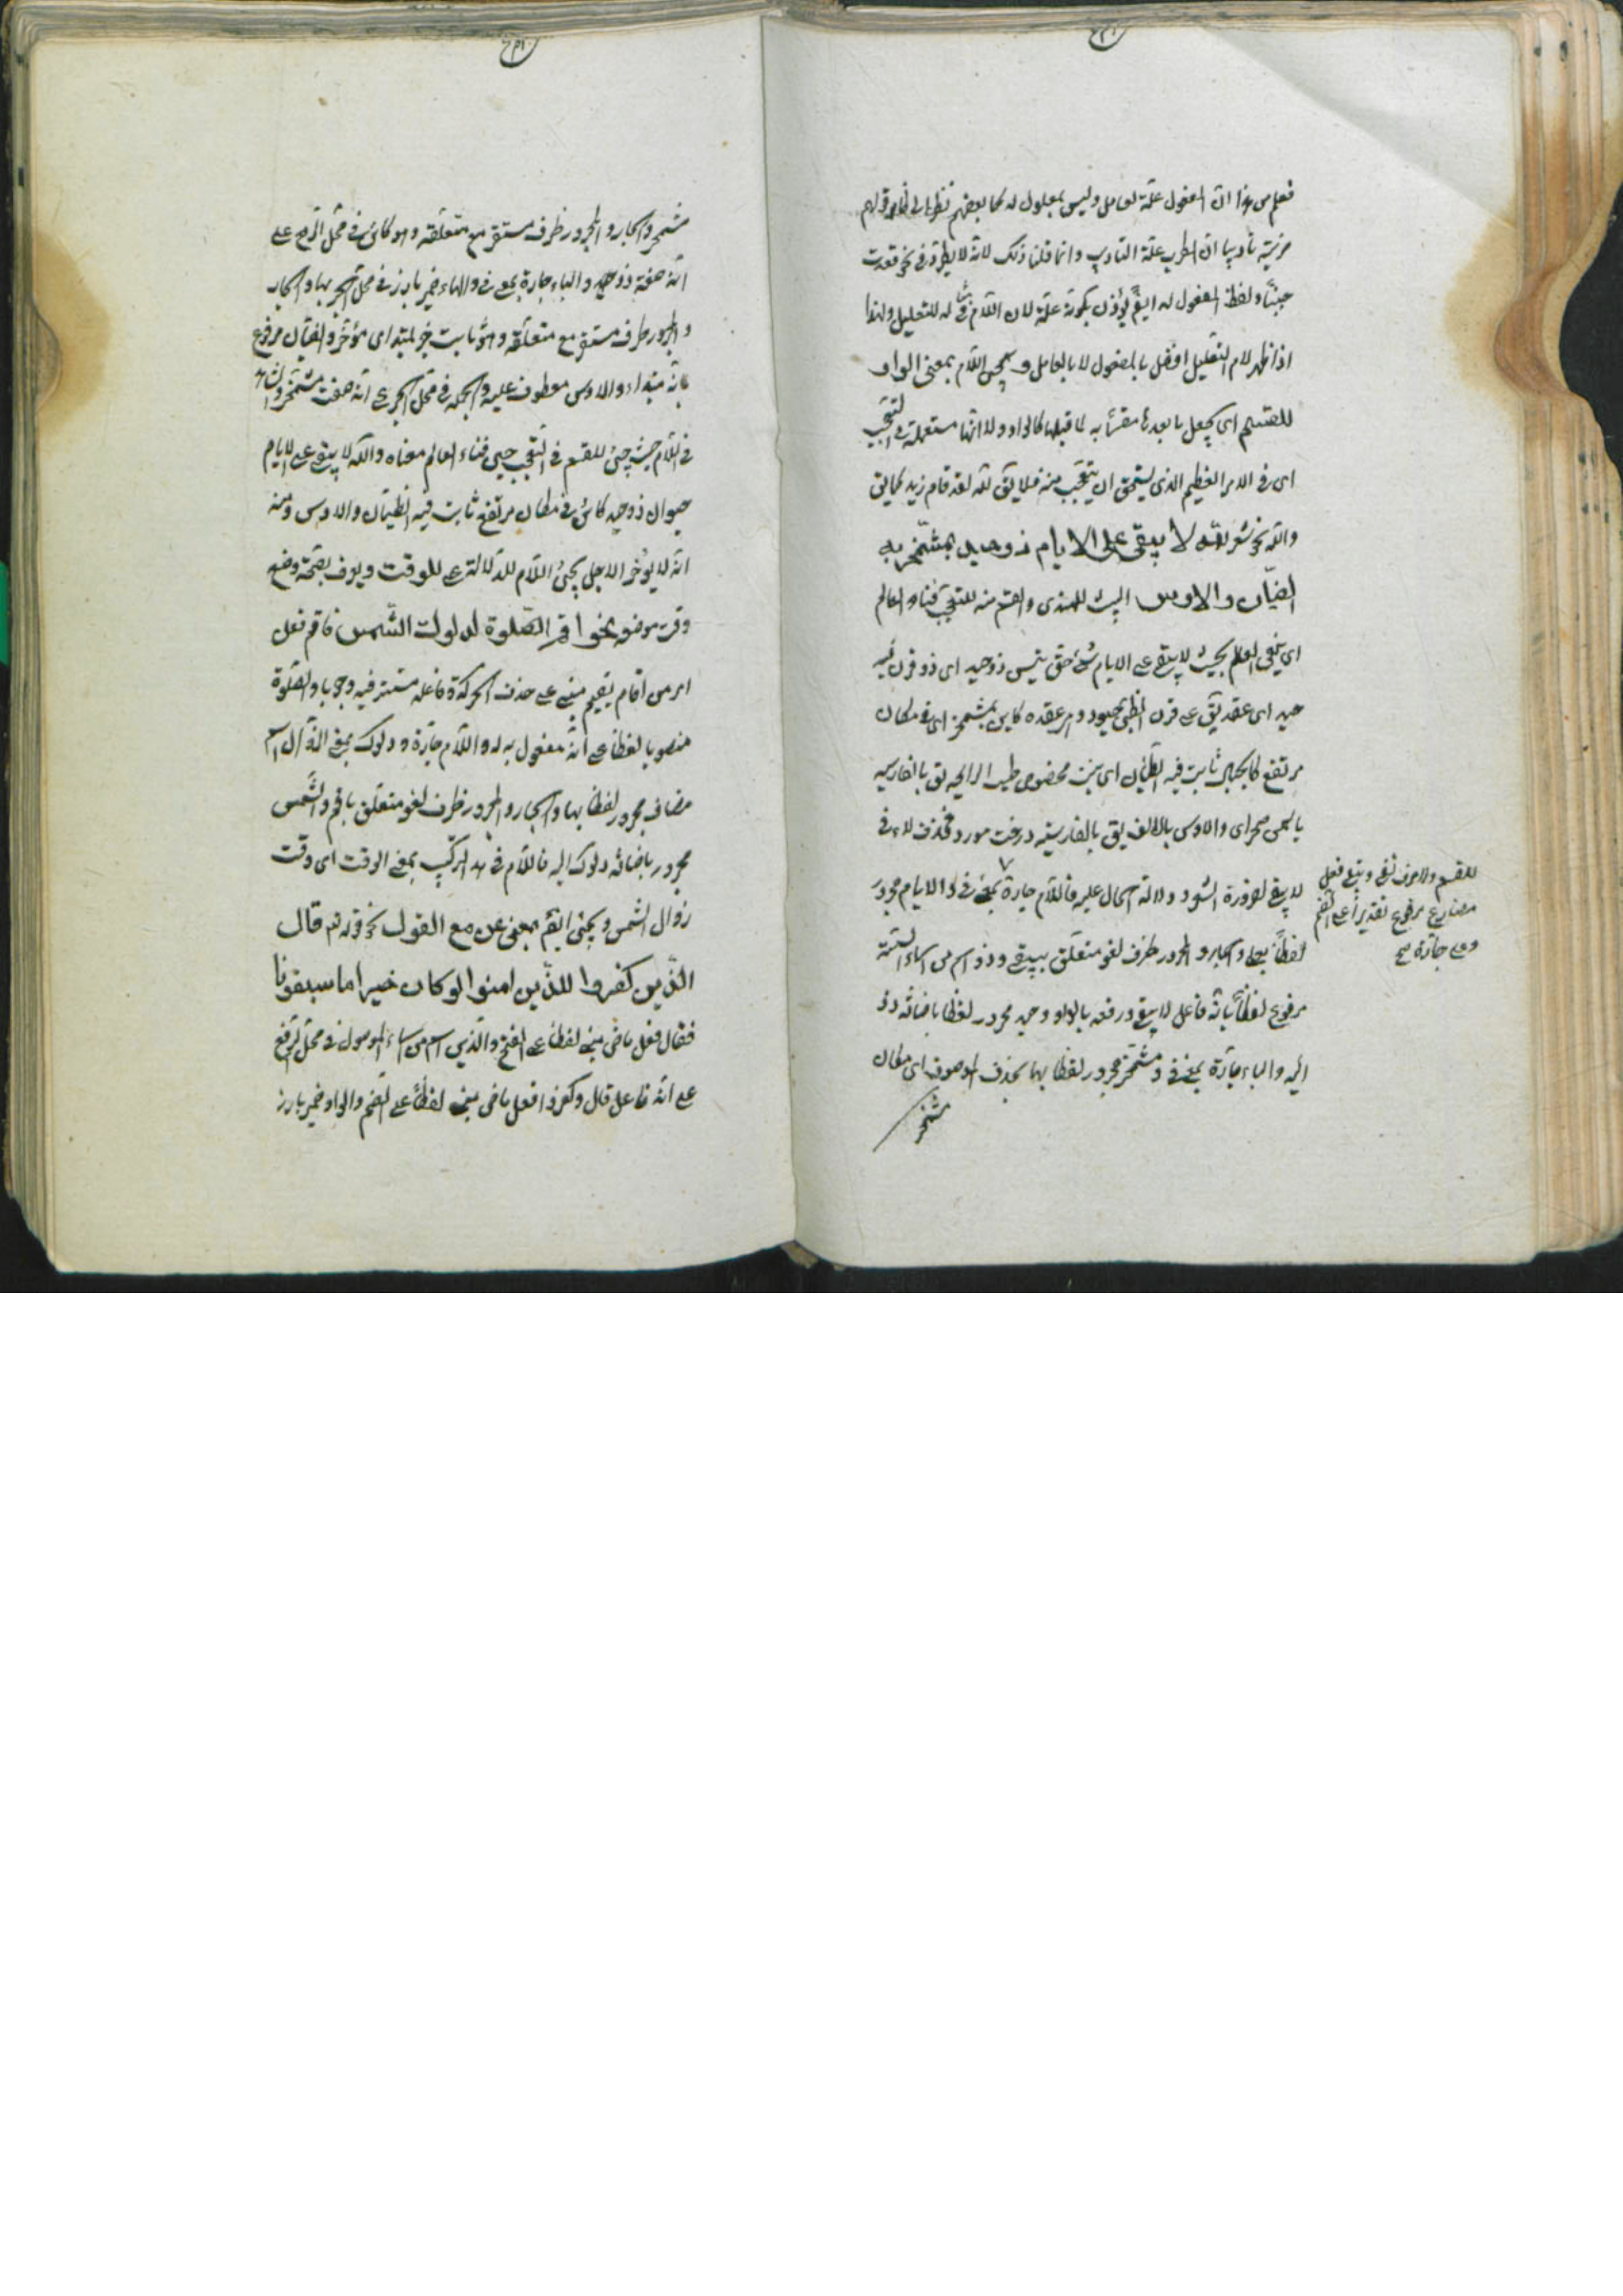 فعلم من هذا ان المفعول علة لعامل وليس بمعلول له كما بعضهم نظرا الى ظاهر قولهم
ضربته تأديبا ان الضرب علة التأديب وانما قلنا ذلك لانه لا يطرد فى نحو قعدت
جبنًا ولفظ المفعول له ايضً يؤذن بكونه علة لان اللام فى له للتعليل ولهذا
اذا ظهر لام التعليل اتصل بالمفعول لا بالعامل و يجئ اللام بمعنى الواو
للقسم اى يجعل ما بعدها مقسمًا به لما قبلها كالواو ولا انها مستعملة فى التعجب
اى فى الامر العظيم الذى يستحق ان يتعجب منه فلا يق لله لقد قام زيد كما يق
والله نحو شعر لله لا يبقى على الايام ذو حيد بمشمخر به
الظيان والاوس البيت للهذلى والقسم منه للتعجب فناء العالم
اى يفنى العالم بحيث لا يبقى على الايام شئ حتى تيس ذو حيد اى ذو قرن فيه
حيد اى عقد يق على قرن الظبى حيود و هى عقده كاين بمشمخر اى فى مكان
مرتفع كالجبال ثابت فيه الظيان اى نبت مخصوص طيب الرايحه يق بالفارسيه
ياسمن صحراى والاوس بالالف يق بالفارسيه درخت مورد فحذف لاء فى
لا يبقى لضرورة الشعر ودلالة الحال عليه فاللام جارة بمعنى فى والايام مجرور
للقسم ولا حرف نفى ويبقى فعل
مضارع مرفوع تقديراً على انه
وعلى جارة صح
لفظًا بعلى والجار والمجرور ظرف لغو متعلق بيبقى وذو اسم من اسماء الستة
مرفوع لفظًا بانه فاعل لا يبقى ورفعه بالواو وحيد مجرور لفظا باضافة ذو
اليه والباء جارة بمعنى فى و مشمخر مجرور لفظا بها بحذف الموصوف اى مكان
مشمخر
مشمخر والجار والمجرور ظرف مستقر مع متعلقه وهو كائن فى محل الرفع على
انه صفة ذو حيد والباء جارة بمعنى فى والهاء ضمير بارز فى محل الجر بها والجار
والمجرور ظرف مستقر مع متعلقه وهو ثابت خبر لمبتداى مؤخر والظيان مرفوع
بانه مبتداء والاوس معطوف عليه والجملة فى محل الجر على انه صفت مشمخر والشاهد
فى اللام حيث جئ للقسم فى التعجب حين فناء العالم معناه والله لا يبقى على الايام
حيوان ذو حيد كائن فى مكان مرتفع ثابت فيه الظيان والاوس ومنه
انه لا يؤخر الاجل يجئ اللام للدلالة على الوقت ويعرف بصحة وضع
وقت موضعه نحو اقم الصلوة لدلوك الشمس فاقم فعل
امر من اقام يقيم مبنى على حذف الحركة وفاعله مستتر فيه وجوبا والصلوة
منصوبا لفظا على انه مفعول به له واللام جارة و دلوك بمعنى الزوال اسم
مضاف مجرور لفظا بها والجار والمجرور ظرف لغو متعلق باقم والشمس
مجرور باضافة دلوك اليه فاللام فى هذا التركيب بمعنى الوقت اى وقت
زوال الشمس ويجئ ايضً بمعنى عن مع القول نحو قوله تع قال
الذين كفروا للذين امنوا لو كان خيرا ما سبقونا
فقال فعل ماضى مبنى لفظا على الفتح والذين اسم من اسماء الموصول فى محل الرفع
على انه فاعل قال وكفروا فعل ماضى مبنى لفظًا على الضم والواو ضمير بارز